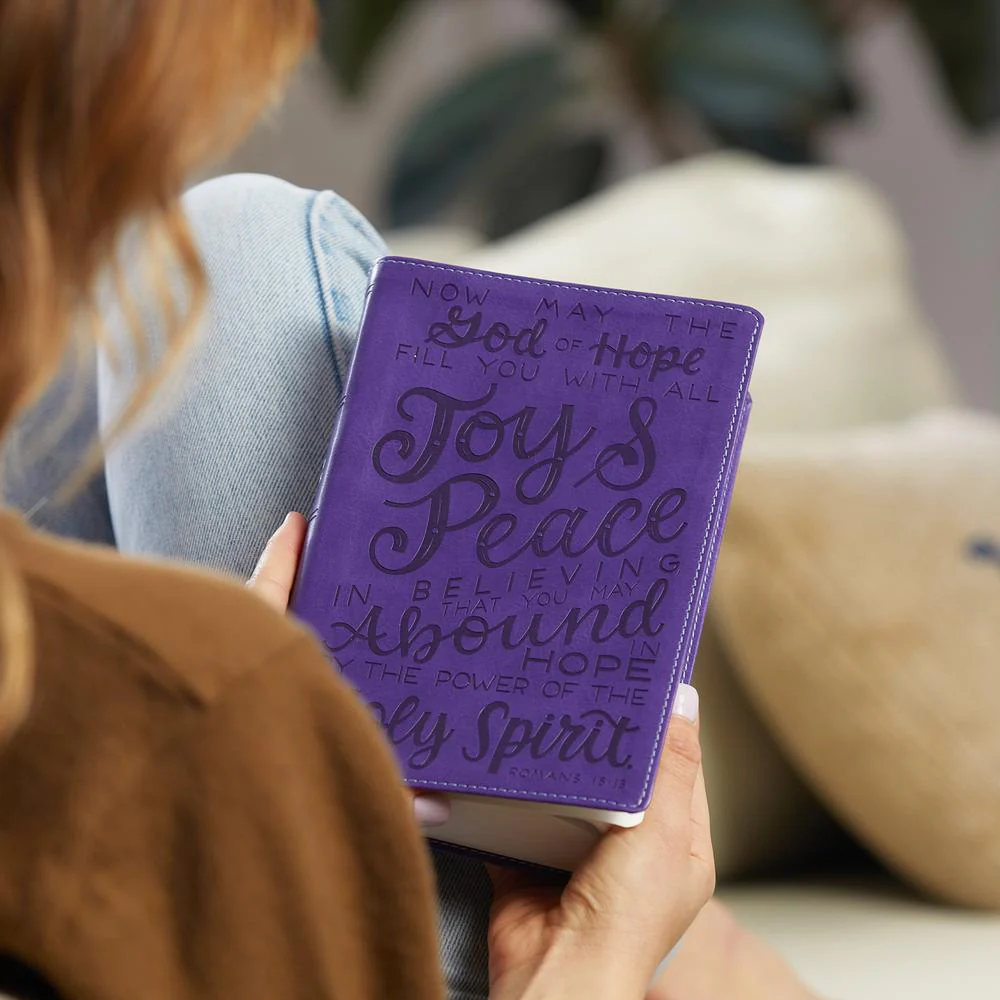 NOW MAY THE
God OF Hope
FILL YOU WITH ALL
Joy &
Peace
IN BELIEVING
THAT YOU MAY
Abound
IN
HOPE
Y THE POWER OF THE
oly Spirit.
ROMANS 15:13